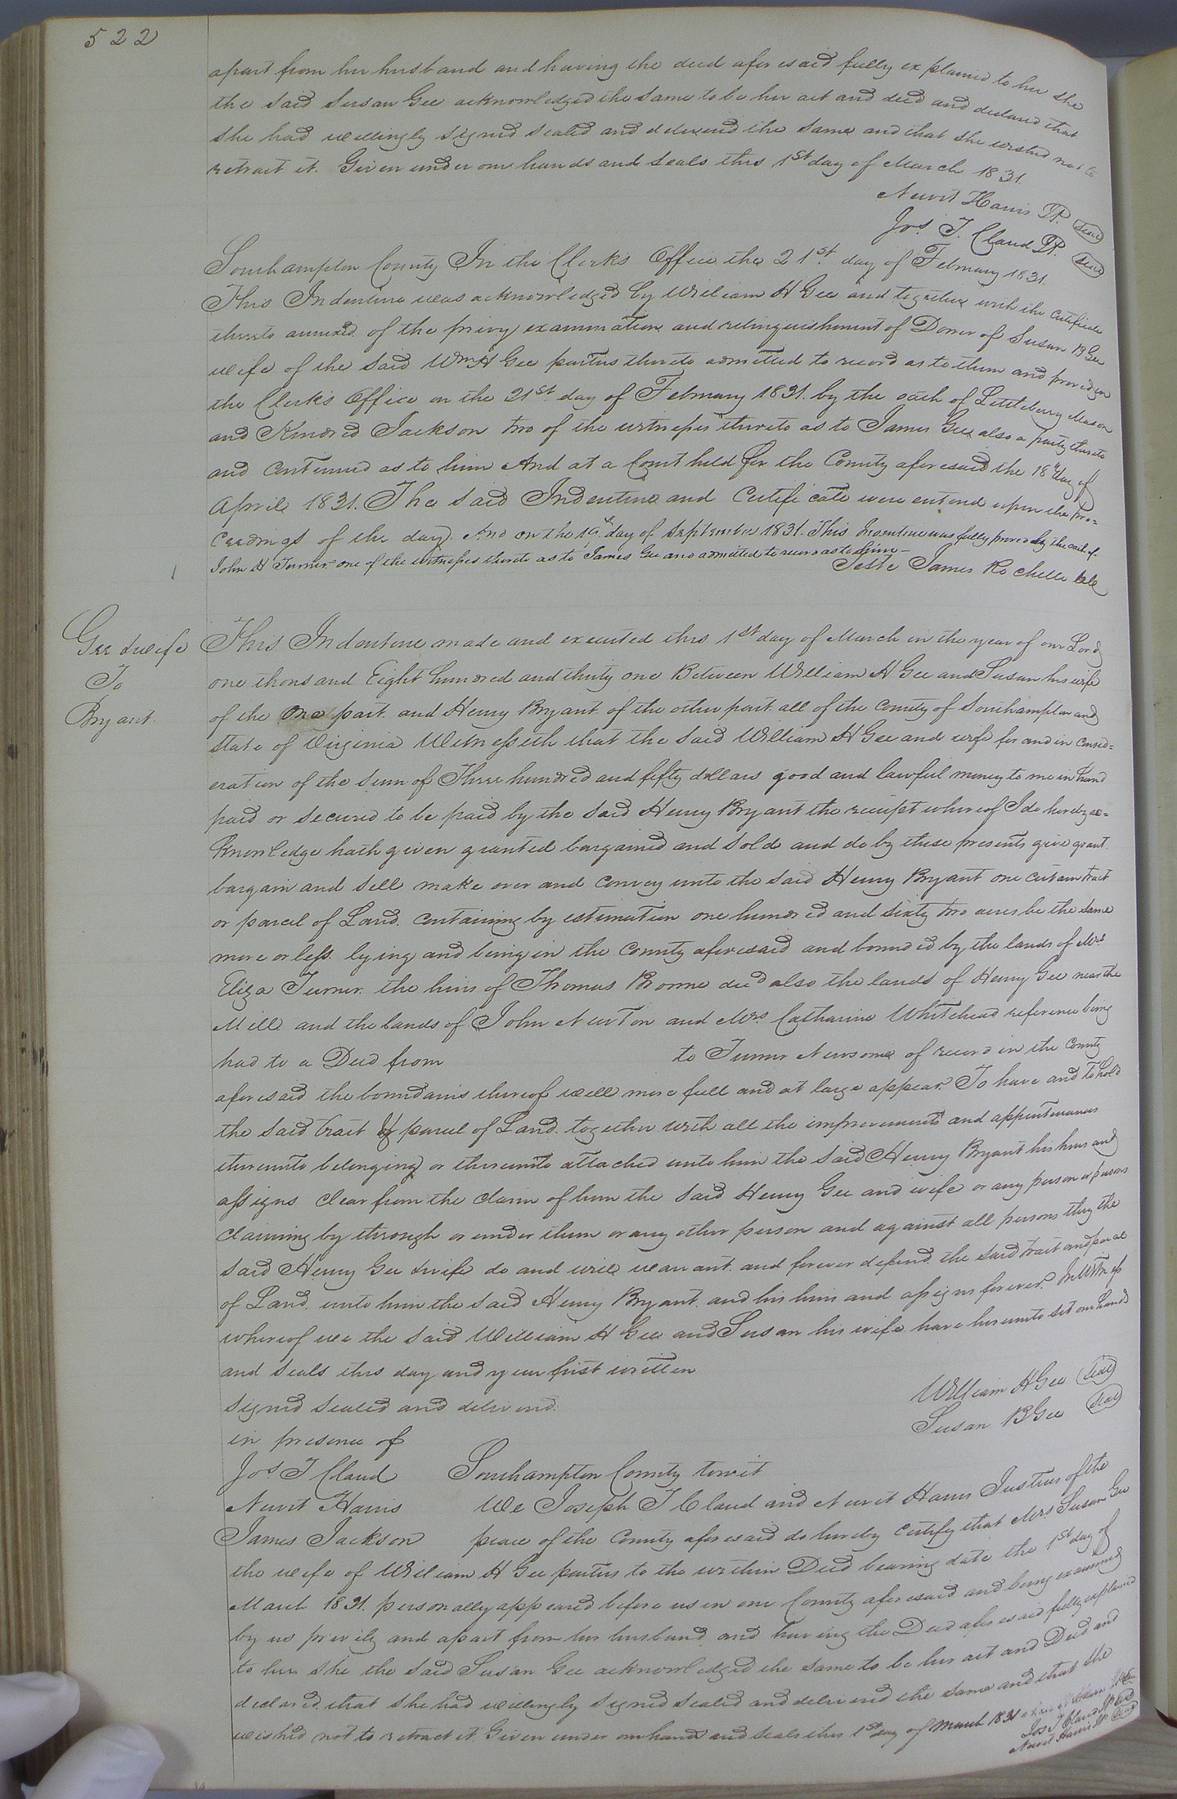 522
apart from her husband and having the deed aforesaid fully explained to her she
the said Susan Gee acknowledged the same to be her act and deed and declared that
she had willingly signed sealed and delivered the same and that she wished not to
retract it. Given under our hands and seals this 1st day of March 1831.
Newit Harris JP. (Seal)
Jos. T. Claud JP. (Seal)
Southampton County In the Clerks Office the 21st. day of February 1831.
This Indenture was acknowledged by William H Gee and together with the Certificate
thereto annexed of the privy examination and relinquishment of Dower of Susan B Gee
wife of the said Wm H Gee parties thereto admitted to record as to them and proved in
the Clerk's Office on the 21st day of February 1831. by the oath of Littlebury Mason
and Kindred Jackson two of the witnesses thereto as to James Gee also a party thereto
and continued as to him And at a Court held for the County aforesaid the 18th day of
April 1831. The said Indenture and Certificate were entered upon the pro=
ceedings of the day. And on the 19th day of September 1831. This Indenture was fully proved by the oath of
John H Turner one of the witnesses thereto as to James Gee and admitted to record as to him—
Teste James Rochelle
Gee & wife
To
Bryant
This Indenture made and executed this 1st day of March in the year of our Lord
one thousand Eight hundred and thirty one Between William H Gee and Susan his wife
of the One part and Henry Bryant of the other part all of the County of Southampton and
state of Virginia Witnesseth that the said William H Gee and wife for and in consid=
eration of the sum of Three hundred and fifty dollars good and lawful money to me in hand
paid or secured to be paid by the said Henry Bryant the receipt whereof I do hereby ac=
knowledge hath given granted bargained and sold and do by these presents give grant
bargain and sell make over and convey unto the said Henry Bryant one certain tract
or parcel of Land containing by estimation one hundred and sixty two acres be the same
more or less lying and being in the County aforesaid and bounded by the lands of Mrs
Eliza Turner the heirs of Thomas Browne decd also the lands of Henry Gee near the
Mill and the lands of John Newton and Mrs Catharine Whitehead reference being
had to a Deed from to Turner Newsome of record in the County
aforesaid the boundaries thereof will more full and at large appear. To have and to hold
the said tract or parcel of Land together with all the improvements and appurtenances
thereunto belonging or thereunto attached unto him the said Henry Bryant his heirs and
assigns clear from the claim of him the said Henry Gee and wife or any person or persons
claiming by through or under them or any other person and against all persons they the
said Henry Gee & wife do and will warrant and forever defend the said tract and parcel
of Land unto him the said Henry Bryant and his heirs and assigns forever. In Witness
whereof we the said William H Gee and Susan his wife have hereunto set our hands
and seals this day and year first written
William H Gee (Seal)
Susan B Gee (Seal)
signed sealed and delivered
in presence of
Jos T Claud
Newit Harris
James Jackson
Southampton County towit
We Joseph T Claud and Newit Harris Justices of the
peace of the County aforesaid do hereby certify that Mrs Susan Gee
the wife of William H Gee parties to the within Deed bearing date the 1st day of
March 1831. personally appeared before us in our County aforesaid and being examined
by us privily and apart from her husband and having the Deed aforesaid fully explained
to her she the said Susan Gee acknowledged the same to be her act and Deed and
declared that she had willingly signed sealed and delivered the same and that she
wished not to retract it Given under our hands and seals this 1st day of March 1831
Jos T Claud JP (Seal)
Newit Harris JP (Seal)